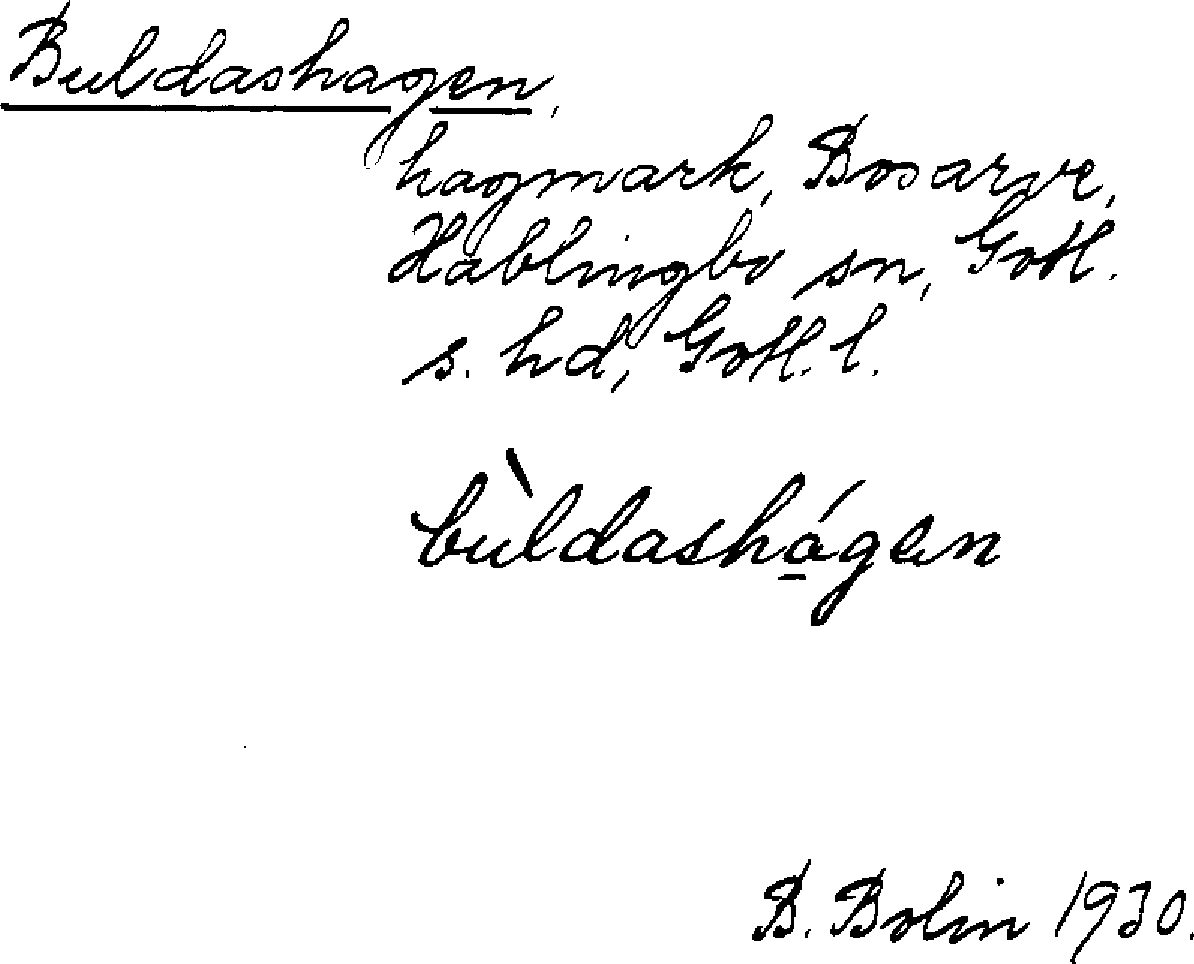 Buldashagen,
hagmark, Bosarve,
Hablingbo sn, Gotl.
s. hd, Gotl. l.
bùldashá̱gen
B. Bolin 1930.